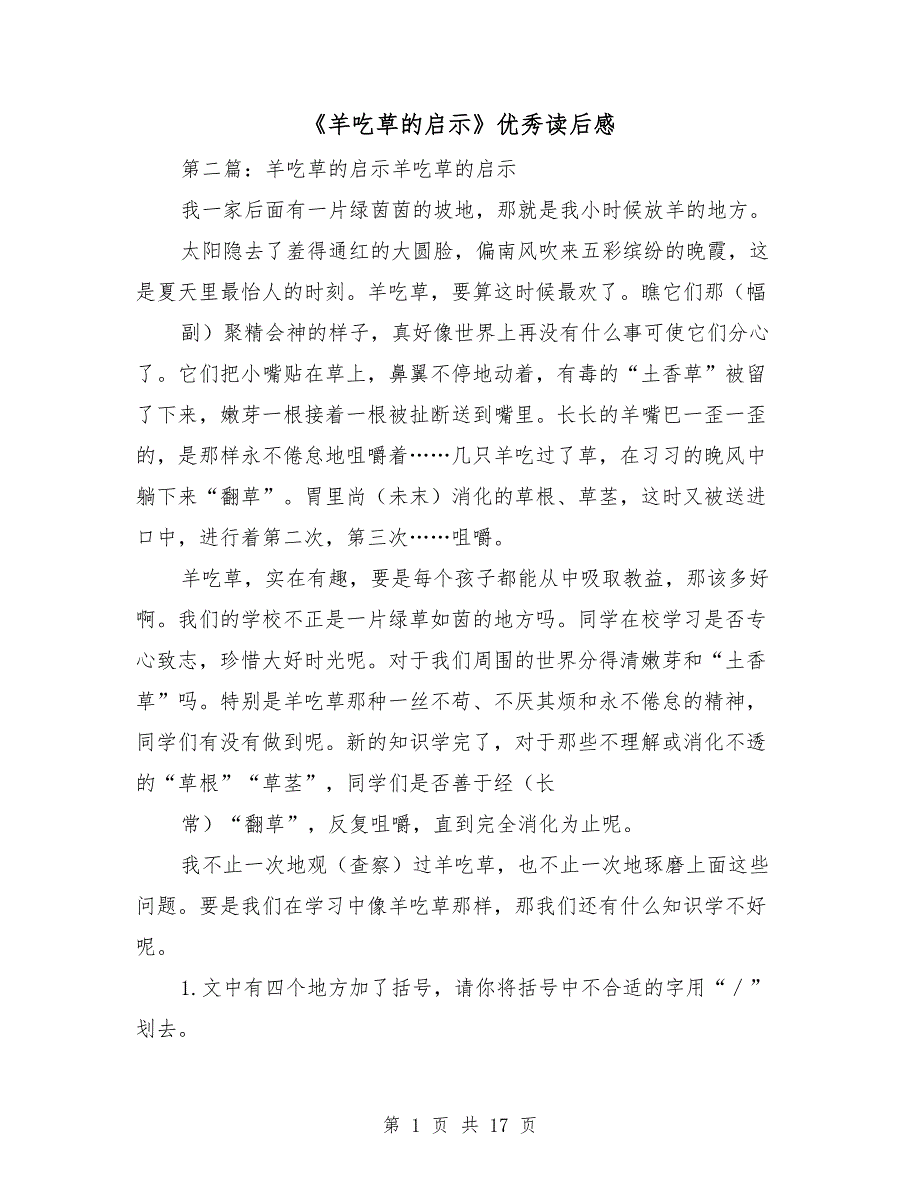 《羊吃草的启示》优秀读后感
第二篇：羊吃草的启示羊吃草的启示
我一家后面有一片绿茵茵的坡地，那就是我小时候放羊的地方。
太阳隐去了羞得通红的大圆脸，偏南风吹来五彩缤纷的晚霞，这
是夏天里最怡人的时刻。羊吃草，要算这时候最欢了。瞧它们那（幅
副）聚精会神的样子，真好像世界上再没有什么事可使它们分心
了。它们把小嘴贴在草上，鼻翼不停地动着，有毒的“土香草”被留
了下来，嫩芽一根接着一根被扯断送到嘴里。长长的羊嘴巴一歪一歪
的，是那样永不倦怠地咀嚼着……几只羊吃过了草，在习习的晚风中
躺下来“翻草”。胃里尚（未末）消化的草根、草茎，这时又被送进
口中，进行着第二次，第三次……咀嚼。
羊吃草，实在有趣，要是每个孩子都能从中吸取教益，那该多好
啊。我们的学校不正是一片绿草如茵的地方吗。同学在校学习是否专
心致志，珍惜大好时光呢。对于我们周围的世界分得清嫩芽和“土香
草”吗。特别是羊吃草那种一丝不苟、不厌其烦和永不倦怠的精神，
同学们有没有做到呢。新的知识学完了，对于那些不理解或消化不透
的“草根”“草茎”，同学们是否善于经（长
常）“翻草”，反复咀嚼，直到完全消化为止呢。
我不止一次地观（查察）过羊吃草，也不止一次地琢磨上面这些
问题。要是我们在学习中像羊吃草那样，那我们还有什么知识学不好
呢。
1.文中有四个地方加了括号，请你将括号中不合适的字用“／”
划去。
第 1 页 共 17 页